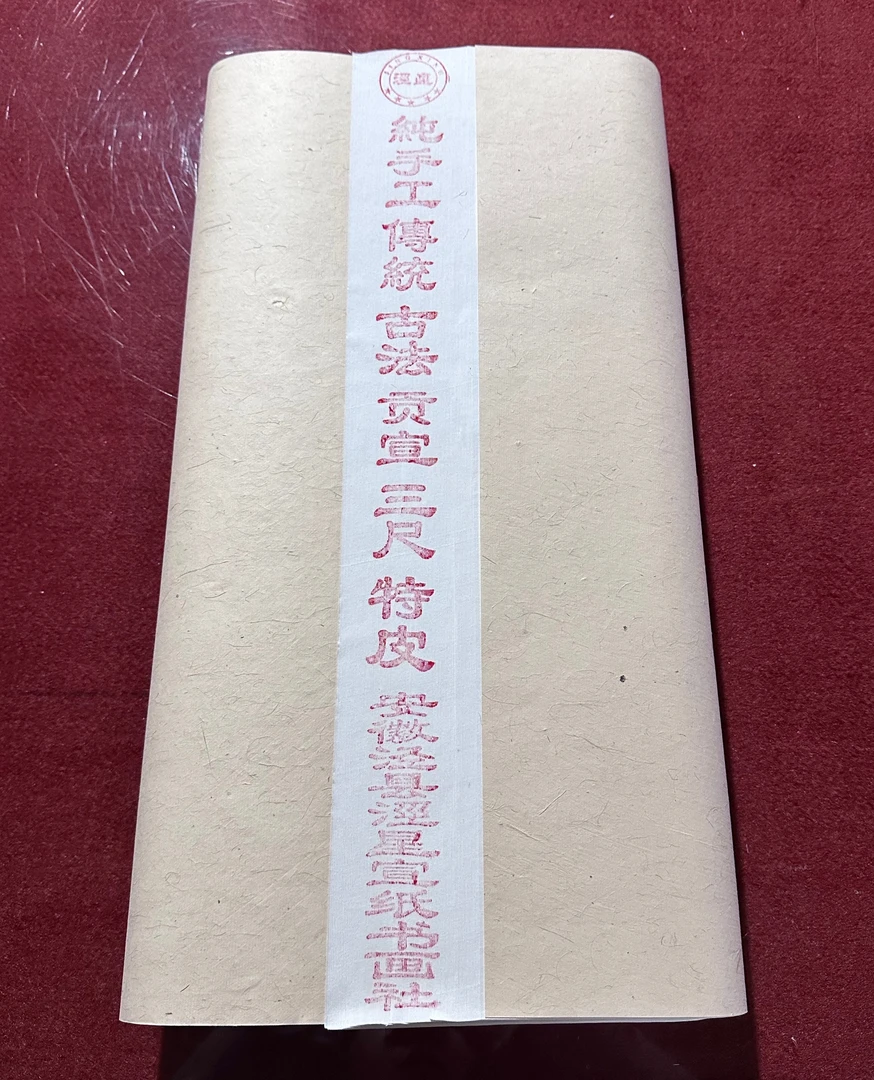 純手工傳統 古法 贡宣 三尺 特皮 安徽泾县涇星宣纸书画社